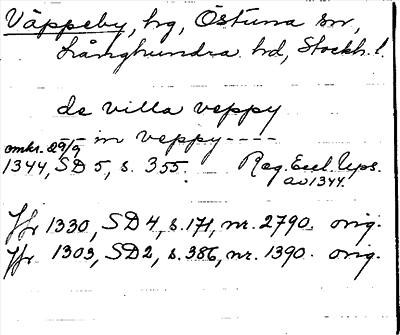 Väppeby, hg, Östuna sn,
Långhundra hd, Stockh. l.
de villa veppy
- - in veppy - - - -
omkr. 29/9
1344, SD 5, s. 355. Reg. Eccl. Ups.
av 1344.
Jfr 1330, SD 4, s. 171, nr. 2790. orig.
Jfr 1303, SD 2, s. 386, nr. 1390. orig.